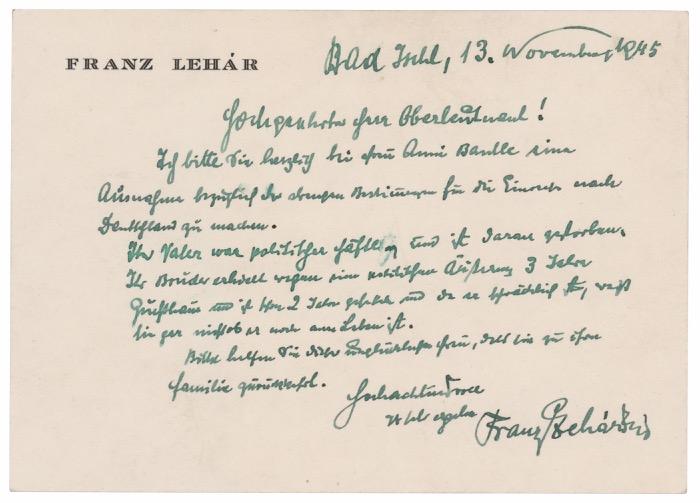 FRANZ LEHÁR
Bad Ischl, 13. November 1945
Hochgeehrter Herr Oberleutnant!
Ich bitte Sie herzlich bei Frau Anni Bandle eine
Ausnahme bezüglich der strengen Bestimmungen für die Einreise nach
Deutschland zu machen.
Ihr Vater war politischer Häftling und ist daran gestorben.
Ihr Bruder erhielt wegen einer politischen Äußerung 3 Jahre
Zuchthaus und ist schon 2 Jahre und da er ist, weiß
sie gar nicht ob er noch am Leben ist.
Bitte helfen Sie dieser unglücklichen Frau, daß sie zu ihrer
Familie zurückkehrt.
Hochachtungsvoll
Ihr sehr ergebener
Franz Lehár